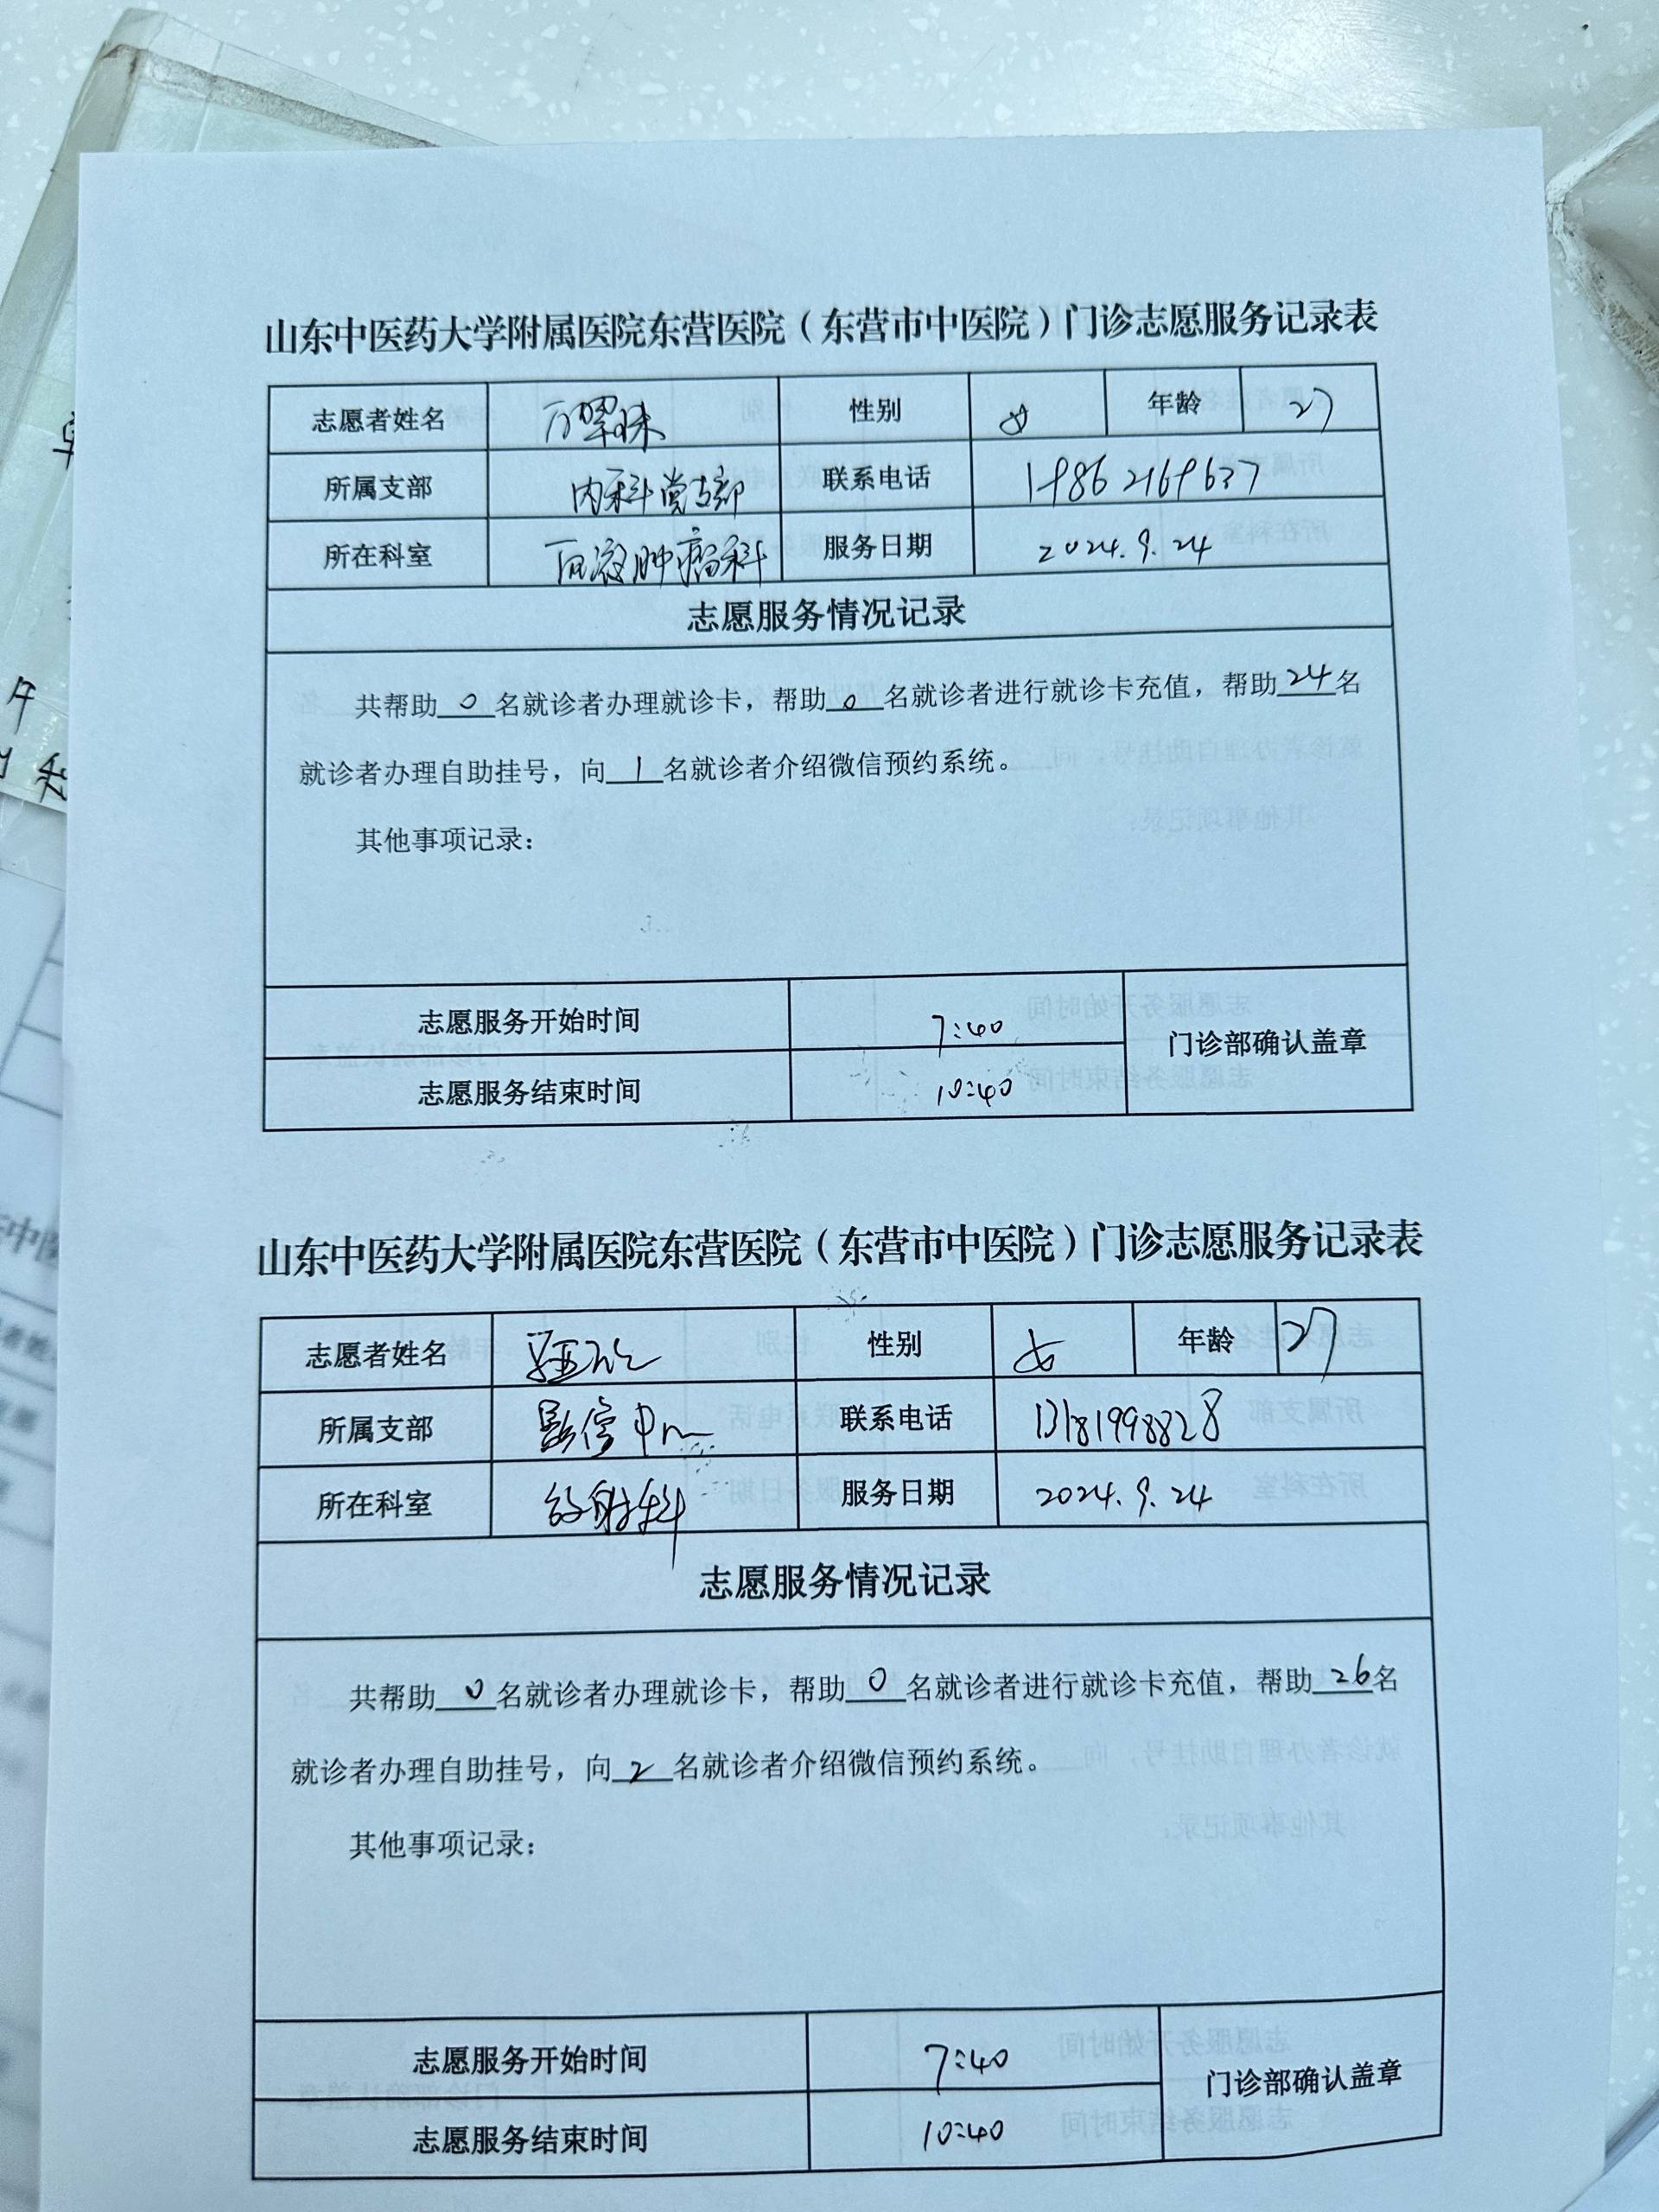 山东中医药大学附属医院东营医院（东营市中医院）门诊志愿服务记录表
志愿者姓名 性别 女 年龄 27
所属支部 内科党支部 联系电话
所在科室 血液肿瘤科 服务日期 2024.9.24
志愿服务情况记录
共帮助0名就诊者办理就诊卡，帮助0名就诊者进行就诊卡充值，帮助24名
就诊者办理自助挂号，向1名就诊者介绍微信预约系统。
其他事项记录：
志愿服务开始时间 7:40
门诊部确认盖章
志愿服务结束时间 10:40
山东中医药大学附属医院东营医院（东营市中医院）门诊志愿服务记录表
志愿者姓名 性别 女 年龄 27
所属支部 影像中心 联系电话 13181998828
所在科室 放射科 服务日期 2024.9.24
志愿服务情况记录
共帮助0名就诊者办理就诊卡，帮助0名就诊者进行就诊卡充值，帮助26名
就诊者办理自助挂号，向2名就诊者介绍微信预约系统。
其他事项记录：
志愿服务开始时间 7:40
门诊部确认盖章
志愿服务结束时间 10:40